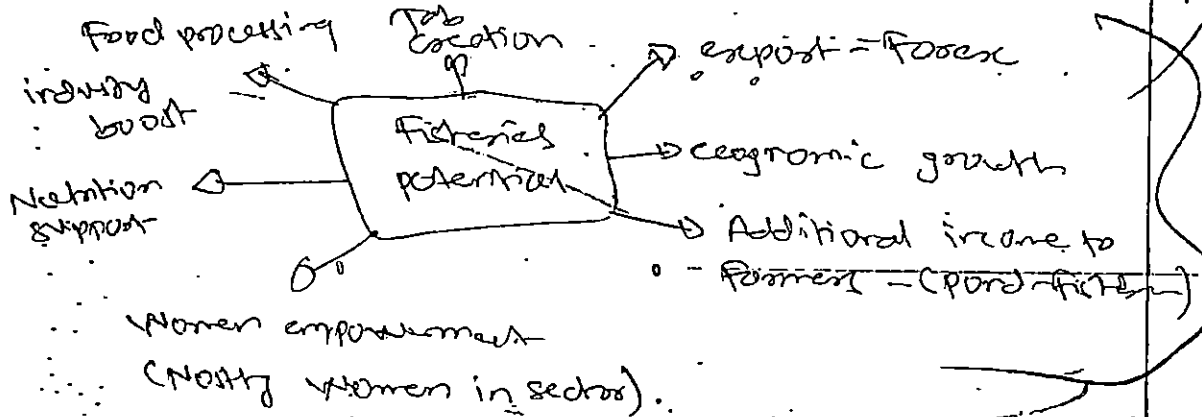 Food processing
industry
boost
Job
creation
export = Forex
Fisheries
potential
economic growth
Nutrition
support
Additional income to
Farmers - (pond-fish)
Women empowerment
(Mostly women in sector).